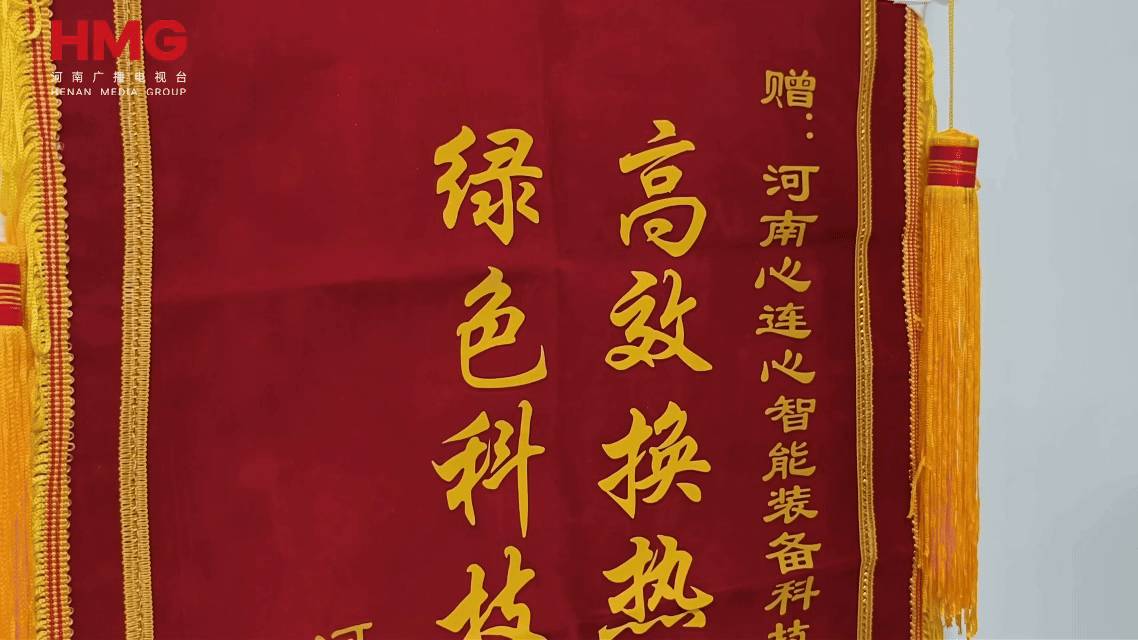 HMG
河南广播电视台
HENAN MEDIA GROUP
赠：河南心连心智能装备科技
高效换热
绿色科技